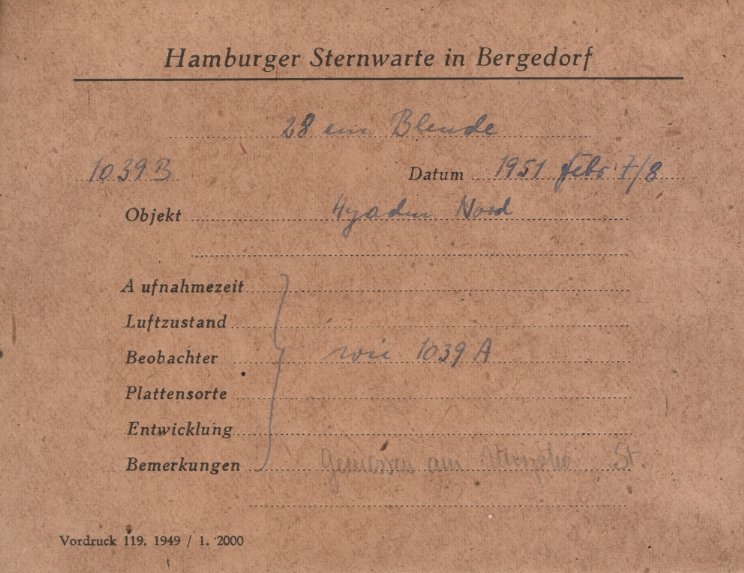 Hamburger Sternwarte in Bergedorf
28 cm Blende
1039 B Datum 1951 Febr 7/8
Objekt Hyaden Nord
Aufnahmezeit
Luftzustand
Beobachter wie 1039 A
Plattensorte
Entwicklung
Bemerkungen Gemessen am St.
Vordruck 119. 1949 / 1. 2000